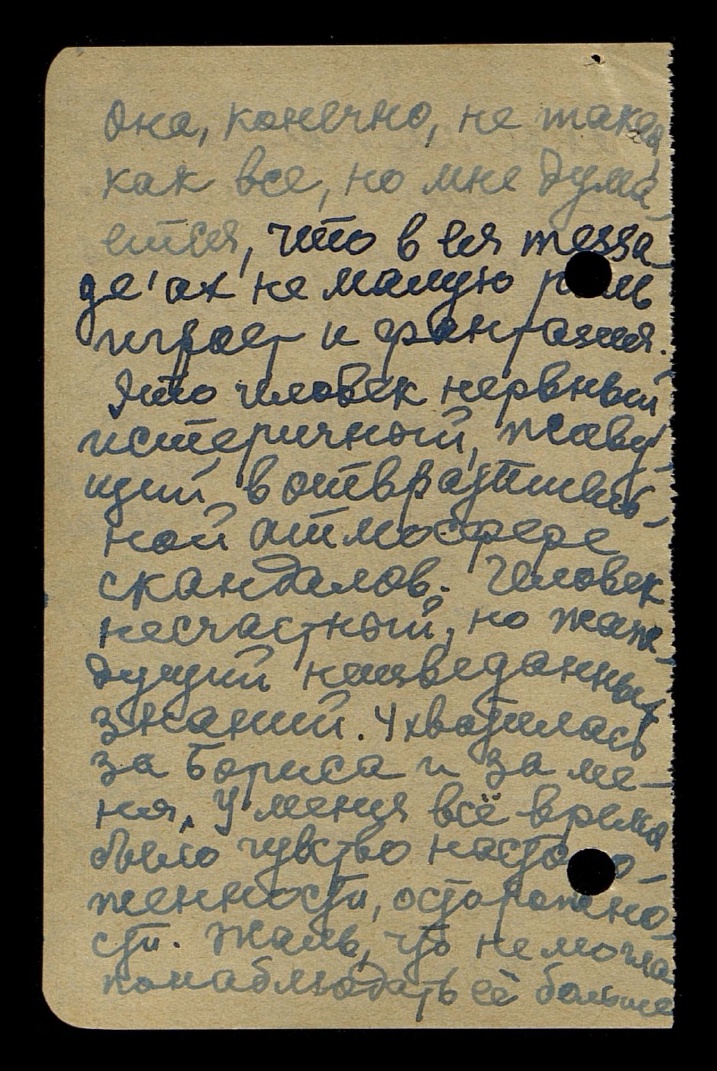 Она, конечно, не такая,
как все, но мне дума-
ется, что в ея mezza
де'ах не малую роль
играет и фантазия.
Это человек нервный
истеричный, живу-
щий в отвратитель-
ной атмосфере
скандалов. Человек
несчастный, но жаж-
дущий неизведанных
знаний. Ухватилась
за Бориса и за ме-
ня. У меня всё время
было чувство насторо-
женности, осторожно-
сти. Жаль, что не могла
понаблюдать её больше